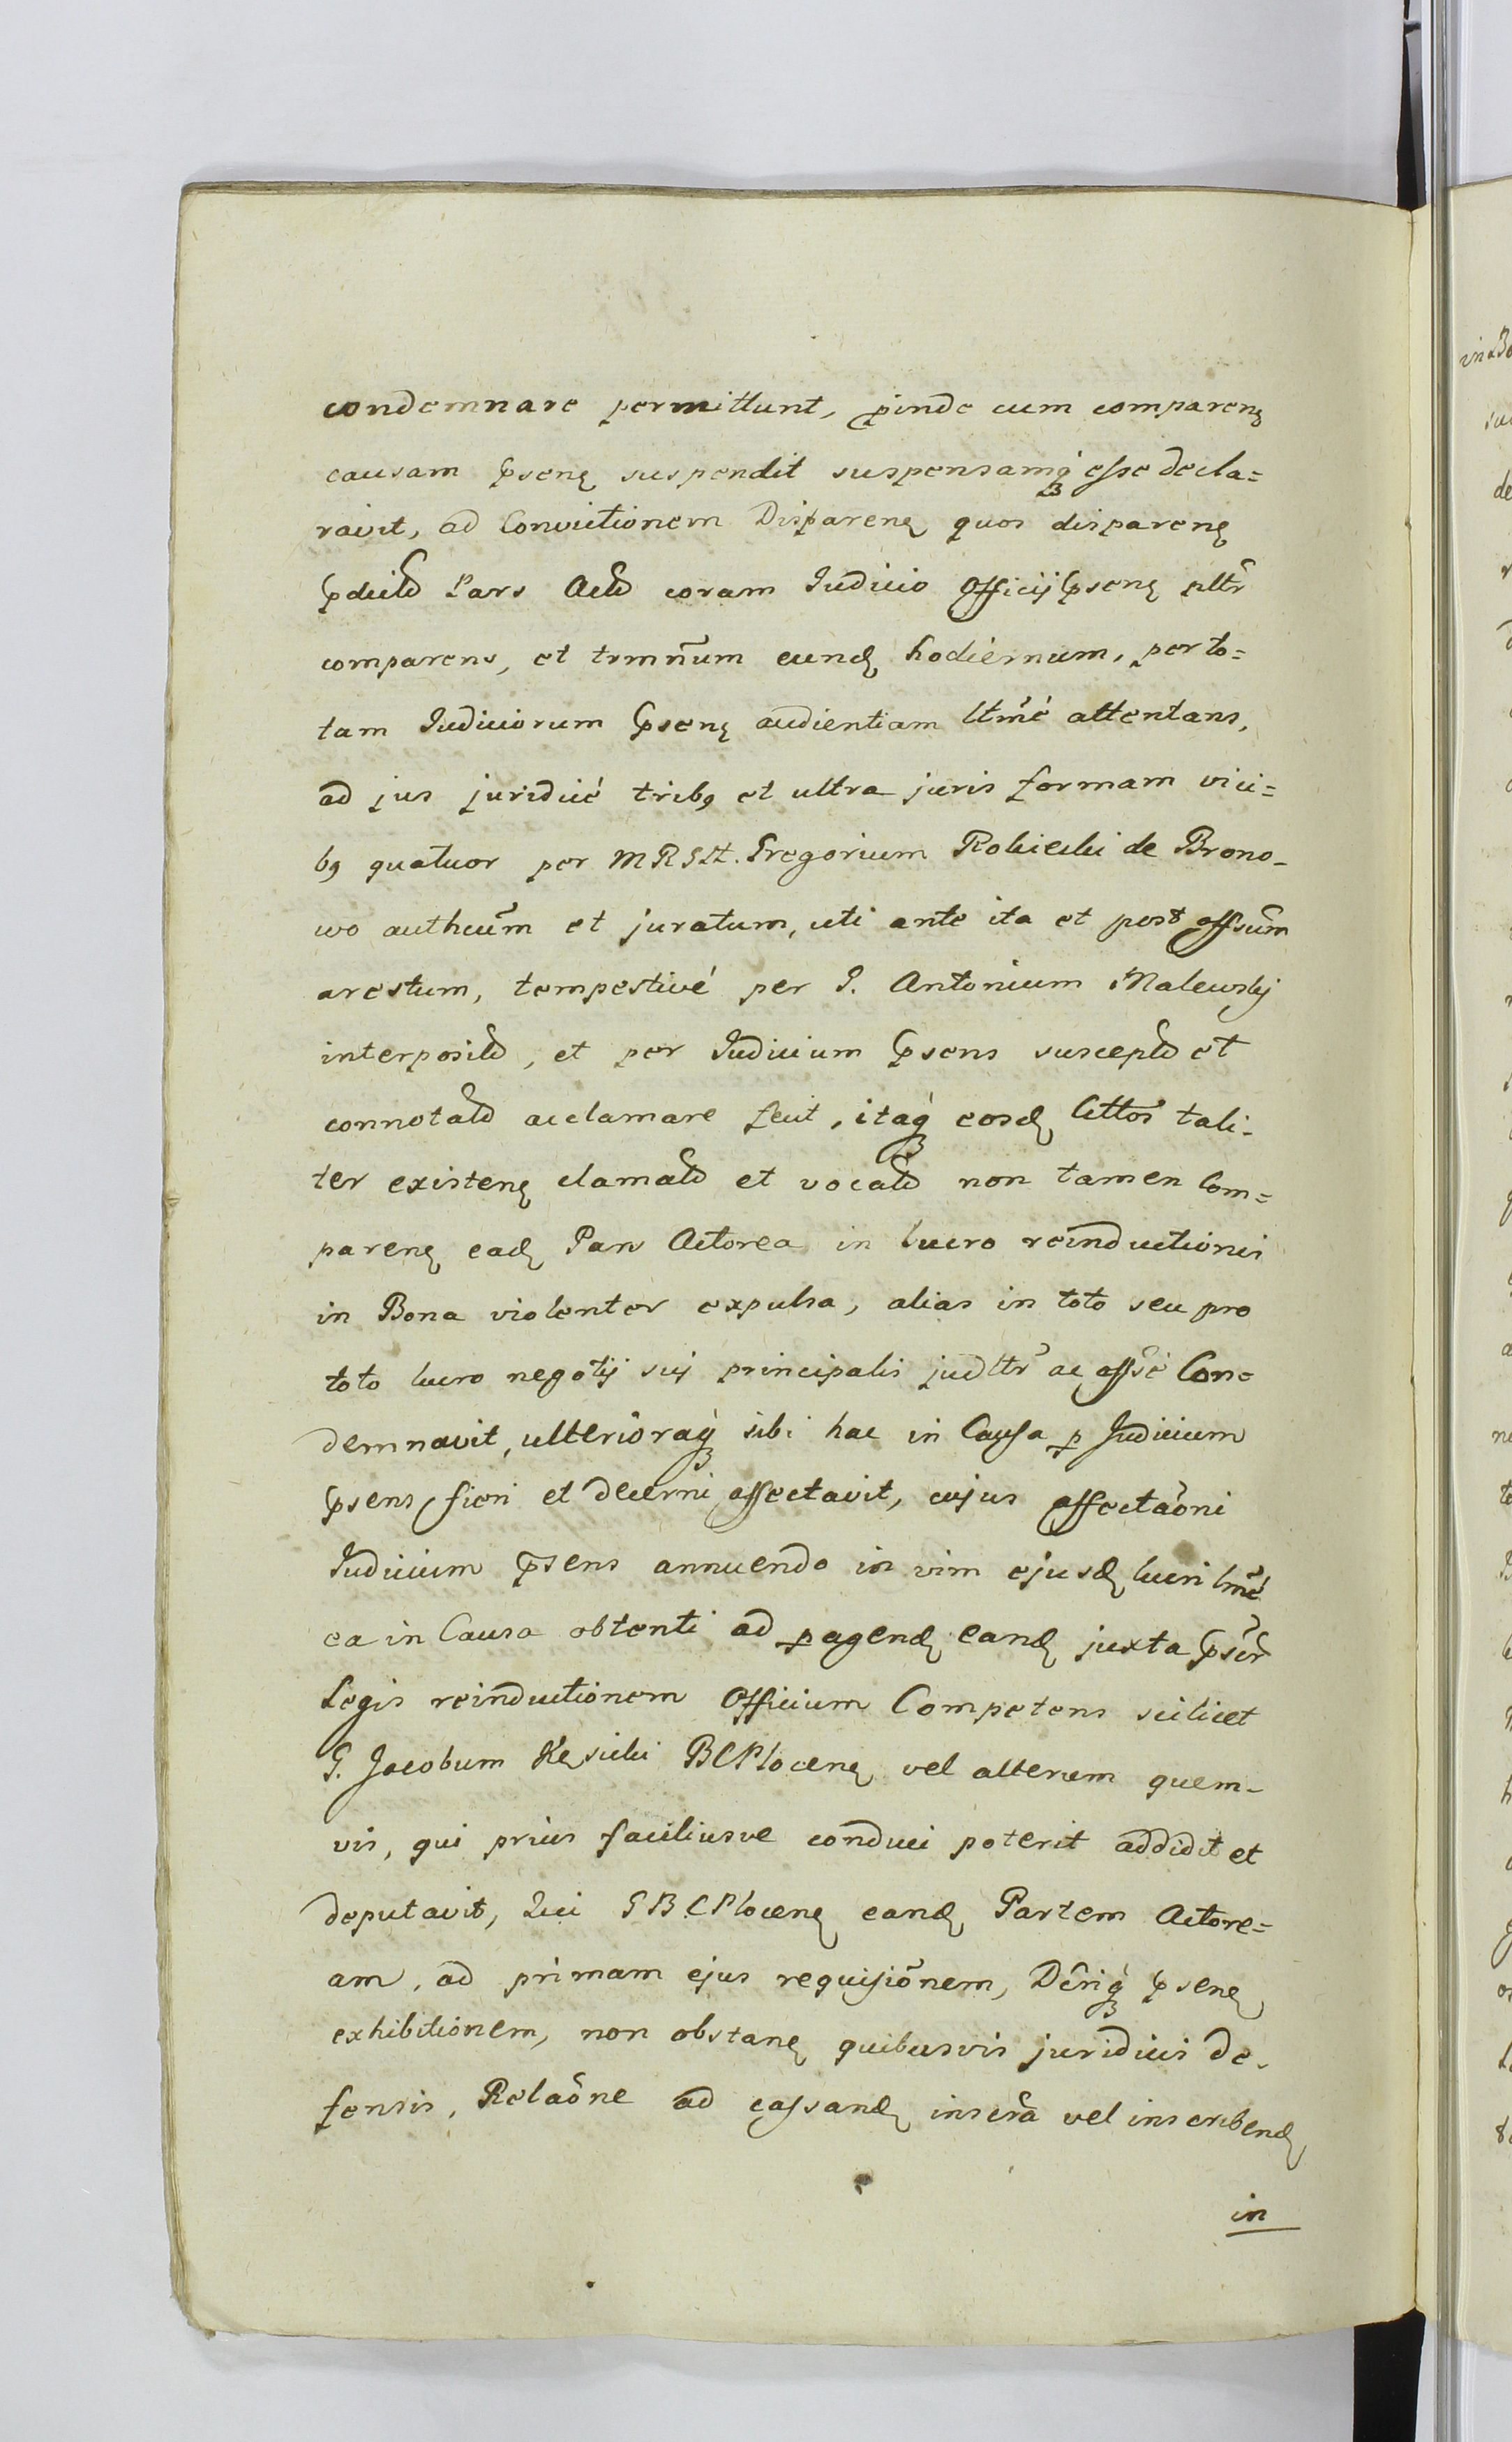 condemnare permittunt, pinde cum comparen
causam psen suspendit suspensamq esse decla=
ravit, ad Convictionem Disparen quos disparen
pdict Pars Act coram Judicio Officij psen pltr
comparens, et trmnum eund hodiernum, per to=
tam Judiciorum psen audientiam ltmé attentans,
ad jus juridicé tribq et ultra juris formam vici=
bq quatuor per MRSR. Gregorium Rokicki de Brono-
wo authcum et juratum, uti ante ita et post offsum
arestum, tempestivé per G. Antonium Malewskij
interposit, et per Judicium psens suscept et
connotat acclamare fecit, itaq eosd Cittos tali-
ter existen clamat et vocat non tamen Com=
paren ead Pars Actorea in lucro reinductionis
in Bona violenter expulsa, alias in toto seu pro
toto lucro negotij sui principalis judltr ac offsé Con=
demnavit, ulterioraq sibi hac in Causa p Judicium
psens fieri et decerni affectavit, cujus affectaõni
Judicium psens annuendo in vim ejusd lucri ltmé
ea in Causa obtenti ad pagend eand juxta pscr
Legis reinductionem Officium Competens scilicet
G. Jacobum Kęsicki BCPlocen vel alterum quem-
vis, qui prius faciliusve conduci poterit addidit et
deputavit, Qui GBCPlocen eand Partem Actore=
am, ad primam ejus requisiõnem, Dcriq psen
exhibitionem, non obstan quibusvis juridicis de-
fensis, Relaõne ad cassand inscra vel inscribend
in